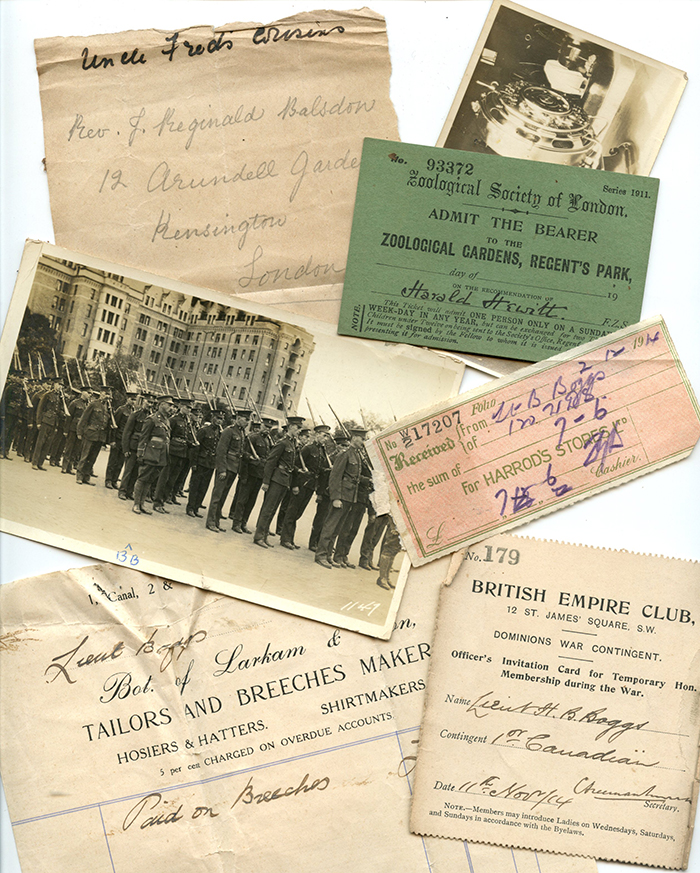 Uncle Fred's Cousins
Rev. J. Reginald Balsdon
12 Arundell Garde
Kensington
London
No. 93372
Series 1911.
Zoological Society of London.
ADMIT THE BEARER
TO THE
ZOOLOGICAL GARDENS, REGENT'S PARK,
day of 19
ON THE RECOMMENDATION OF
Harald Hewitt F.Z.S.
NOTE.
This Ticket will admit ONE PERSON ONLY on a SUNDA
WEEK-DAY IN ANY YEAR, but can be exchanged for two
Children under Twelve on being sent to the Society's Office, Regent
It must be signed by the Fellow to whom it is issued
presenting it for admission.
No W/2 17207 FOLIO 2 12 1914
Received from Lt B Boggs
of
the sum of 7-6
For HARROD'S STORES, LTD
£ 7-6 Cashier.
BB
1147
Canal, 2 &
Lieut Boggs
Bot. of Larkam & on,
TAILORS AND BREECHES MAKER
HOSIERS & HATTERS. SHIRTMAKERS
5 per cent CHARGED ON OVERDUE ACCOUNTS
Paid on Breeches
No. 179
BRITISH EMPIRE CLUB,
12 ST. JAMES' SQUARE, S.W.
DOMINIONS WAR CONTINGENT.
Officer's Invitation Card for Temporary Hon.
Membership during the War.
Name Lieut H. B. Boggs
Contingent 1st Canadian
Date 11th Nov/14
Secretary.
NOTE.—Members may introduce Ladies on Wednesdays, Saturdays,
and Sundays in accordance with the Byelaws.